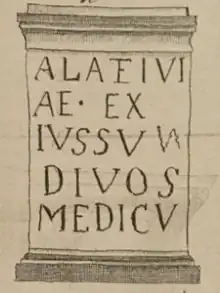 ALATEIVI
AE · EX
IVSSV
DIVOS
MEDICV